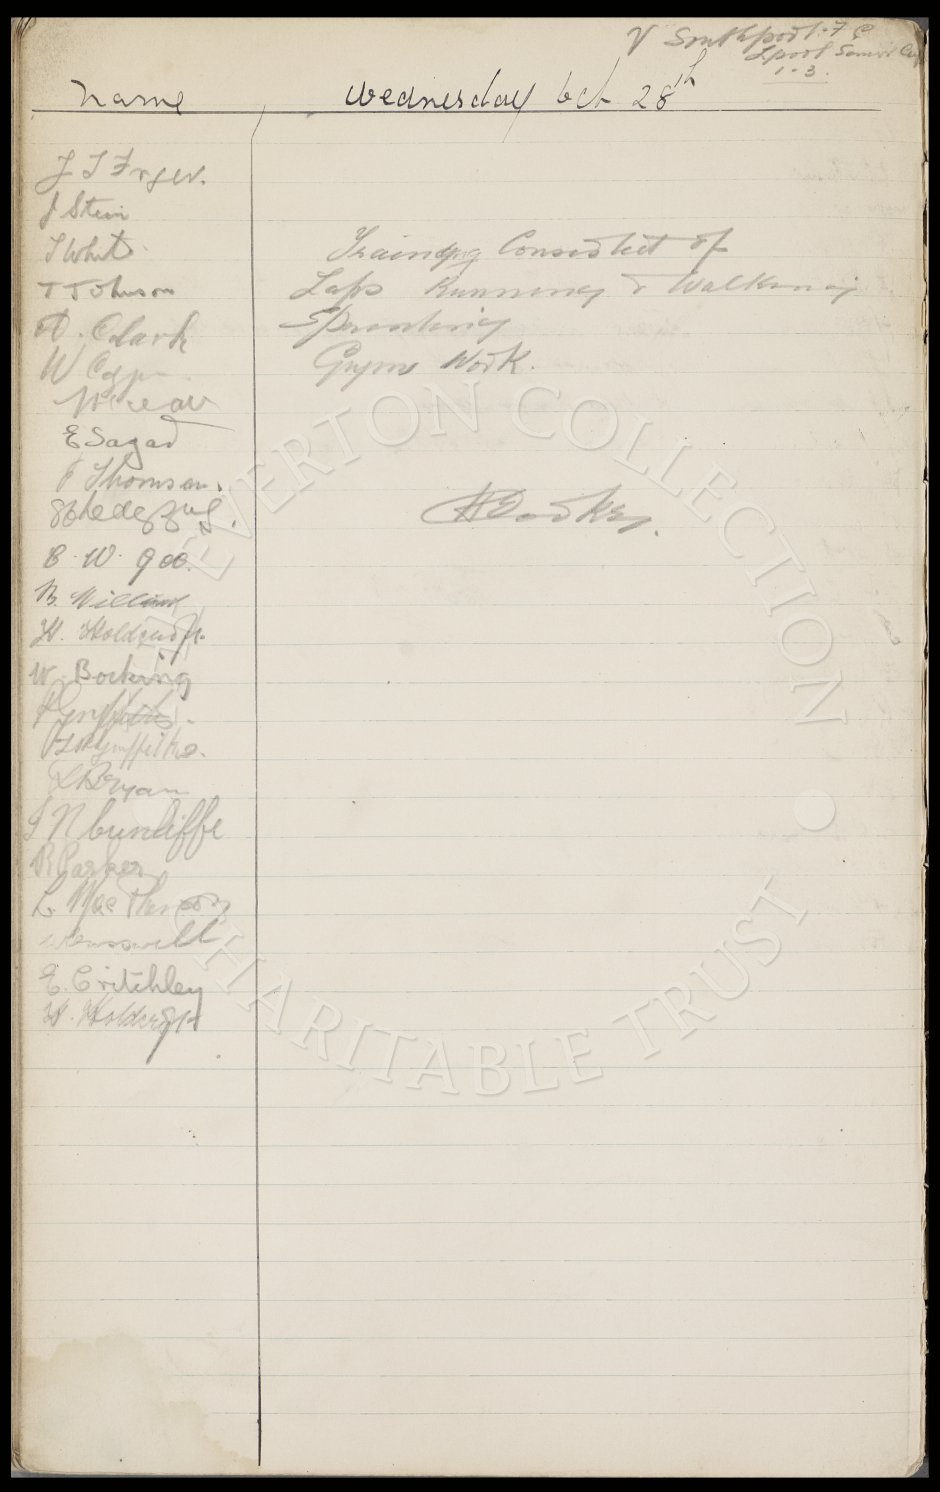 V Southport. F C
Lpool Senior Cup
1-3.
Name
Wednesday Oct 28th
J Stein
T White
T Johnson
A. Clark
W
E Sagar
T Thomson.
C. W. Gee.
B. Williams
H. Holdcroft.
W. Bocking
P Griffiths.
P H Griffiths.
L Bryan
J N Cunliffe
R Parker
L MacPherson
E. Critchley
H. Holdcroft
Training Consistet of
Laps Running & Walking
Sprinting
Gym Work.
H E Cooke.
THE EVERTON COLLECTION
CHARITABLE TRUST